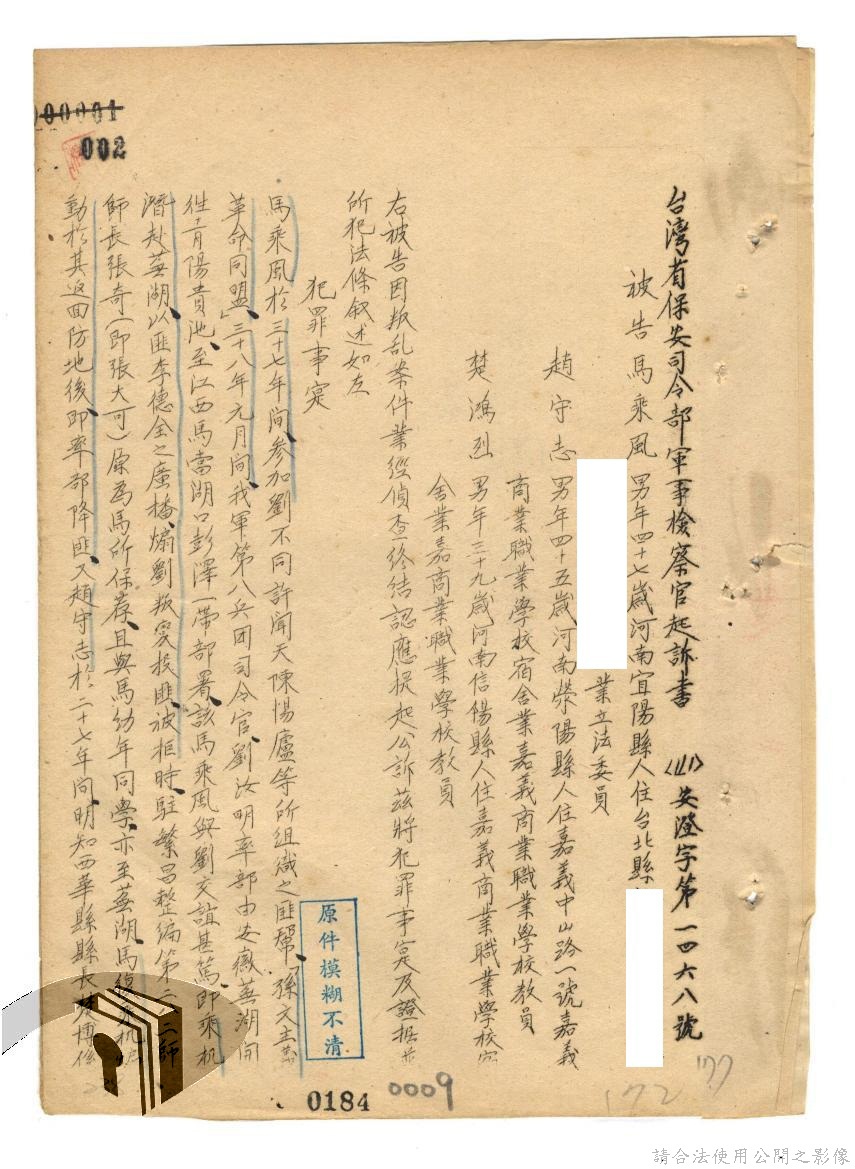 台灣省保安司令部軍事檢察官起訴書 (41)安澄字第一四六八號
被告馬乘風 男年四十七歲河南宜陽縣人住台北縣
業立法委員
趙守志 男年四十五歲河南滎陽縣人住嘉義中山路一號嘉義
商業職業學校宿舍業嘉義商業職業學校教員
楚鴻烈 男年三十九歲河南信陽縣人住嘉義商業職業學校宿
舍業嘉商業職業學校教員
右被告因叛乱案件業經偵查終結認應提起公訴茲將犯罪事実及證据並
所犯法條叙述如左
犯罪事実
馬乘風於三十七年间參加劉不同許闻天陳惕廬等所組織之匪幫「孫文主義
革命同盟」三十八年元月间我軍第八兵团司令官劉汝明率部由安徽蕪湖開
往青陽貴池至江西馬當湖口彭澤一帶部署該馬乘風與劉交誼甚篤即乘机
潛赴蕪湖以匪李德全之廣播煽劉叛变投匪被拒時駐繁昌整編第二 二師
師長張奇(即張大可)原為馬所保荐且與馬幼年同學亦至蕪湖馬復乘机
動於其返回防地後即率部降匪又趙守志於二十七年间明知西華縣縣長 博係
000001
002
原件模糊不清
0184
0009
172
177
請合法使用公開之影像